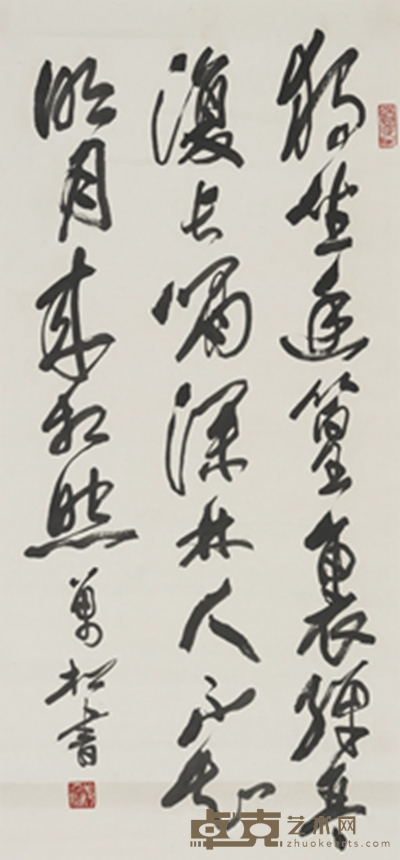 獨坐幽篁裏彈琴
復長嘯深林人不知
明月來相照
萬松書
卓克艺术网
zhuokearts.com